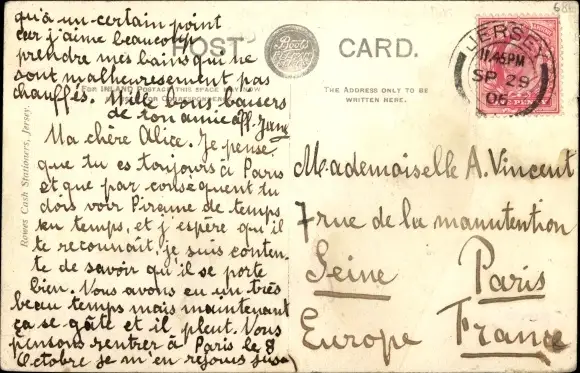 qu'à un certain point
car j'aime beaucoup
prendre mes bains qui ne
sont malheureusement pas
chauffés. Mille bons baisers
de ton amie aff. Jane
Ma chère Alice. Je pense
que tu es toujours à Paris
et que par conséquent tu
dois voir Pirame de temps
en temps, et j'espère qu'il
te reconnaît, je suis conten-
te de savoir qu'il se porte
bien. Nous avons eu un très
beau temps mais maintenant
ça se gâte et il pleut. Nous
pensons rentrer à Paris le 8
Octobre je m'en rejouis jus
POST CARD.
Boots
FOR INLAND POSTAGE THIS SPACE MAY NOW
THE ADDRESS ONLY TO BE
WRITTEN HERE.
Rowes Cash Stationers, Jersey.
JERSEY
11.45PM
SP 29
06
PENNY
Mademoiselle A. Vincent
7 rue de la manutention
Seine Paris
Europe France